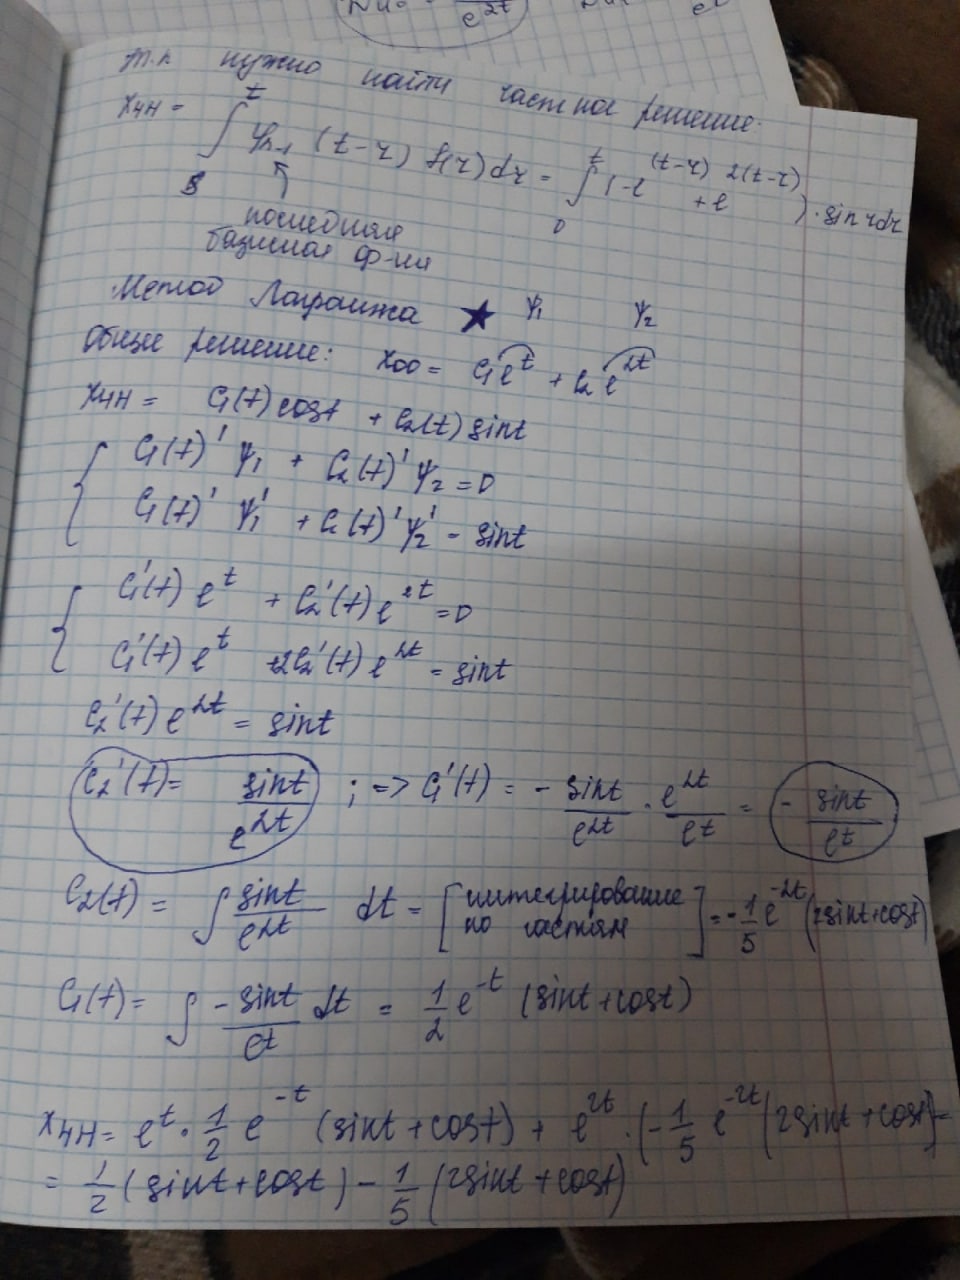 e^2t
т.к нужно найти частное решение:
xчн = ∫ φn-1 (t-τ) f(τ)dτ = ∫ (-e^(t-τ) + e^2(t-τ)) · sin τdτ
последняя
базисная ф-ия
Метод Лагранжа ★ ψ1 ψ2
Общее решение: xоо = C1e^t + C2e^2t
xчн = C1(t)cost + C2(t)sint
C1(t)'ψ1 + C2(t)'ψ2 = 0
C1(t)'ψ1' + C2(t)'ψ2' = sint
C1'(t)e^t + C2'(t)e^2t = 0
C1'(t)e^t + 2C2'(t)e^2t = sint
C2'(t)e^2t = sint
C2'(t) = sint/e^2t ; => C1'(t) = - sint/e^2t · e^2t/e^t = - sint/e^t
C2(t) = ∫ sint/e^2t dt = [интегрирование по частям] = -1/5 e^-2t (2sint+cost)
C1(t) = ∫ -sint/e^t dt = 1/2 e^-t (sint+cost)
xчн = e^t · 1/2 e^-t (sint+cost) + e^2t · (-1/5 e^-2t (2sint+cost)) =
= 1/2 (sint+cost) - 1/5 (2sint+cost)